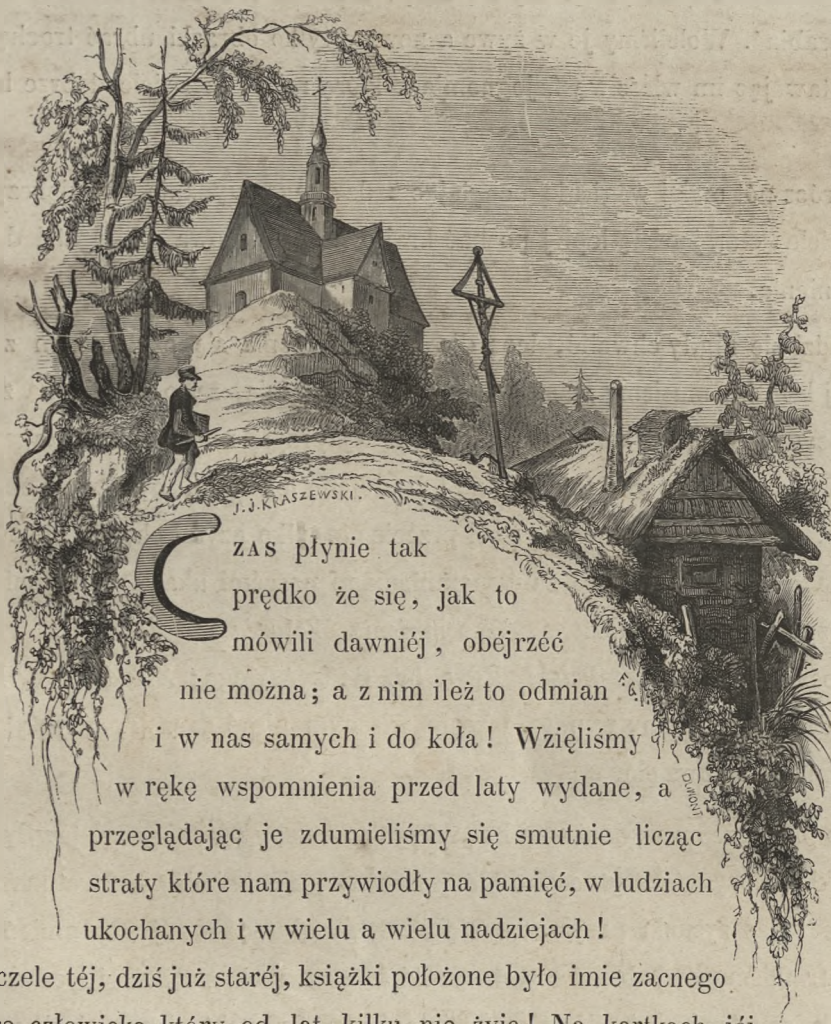 J. J. KRASZEWSKI.
CZAS płynie tak
prędko że się, jak to
mówili dawniéj, obéjrzéć
nie można; a z nim ileż to odmian
F. G.
i w nas samych i do koła! Wzięliśmy
w rękę wspomnienia przed laty wydane, a
DUMONT
przeglądając je zdumieliśmy się smutnie licząc
straty które nam przywiodły na pamięć, w ludziach
ukochanych i w wielu a wielu nadziejach!
czele téj, dziś już staréj, książki położone było imie zacnego
człowieka który od lat kilku nie żyje! Na kartkach jéj